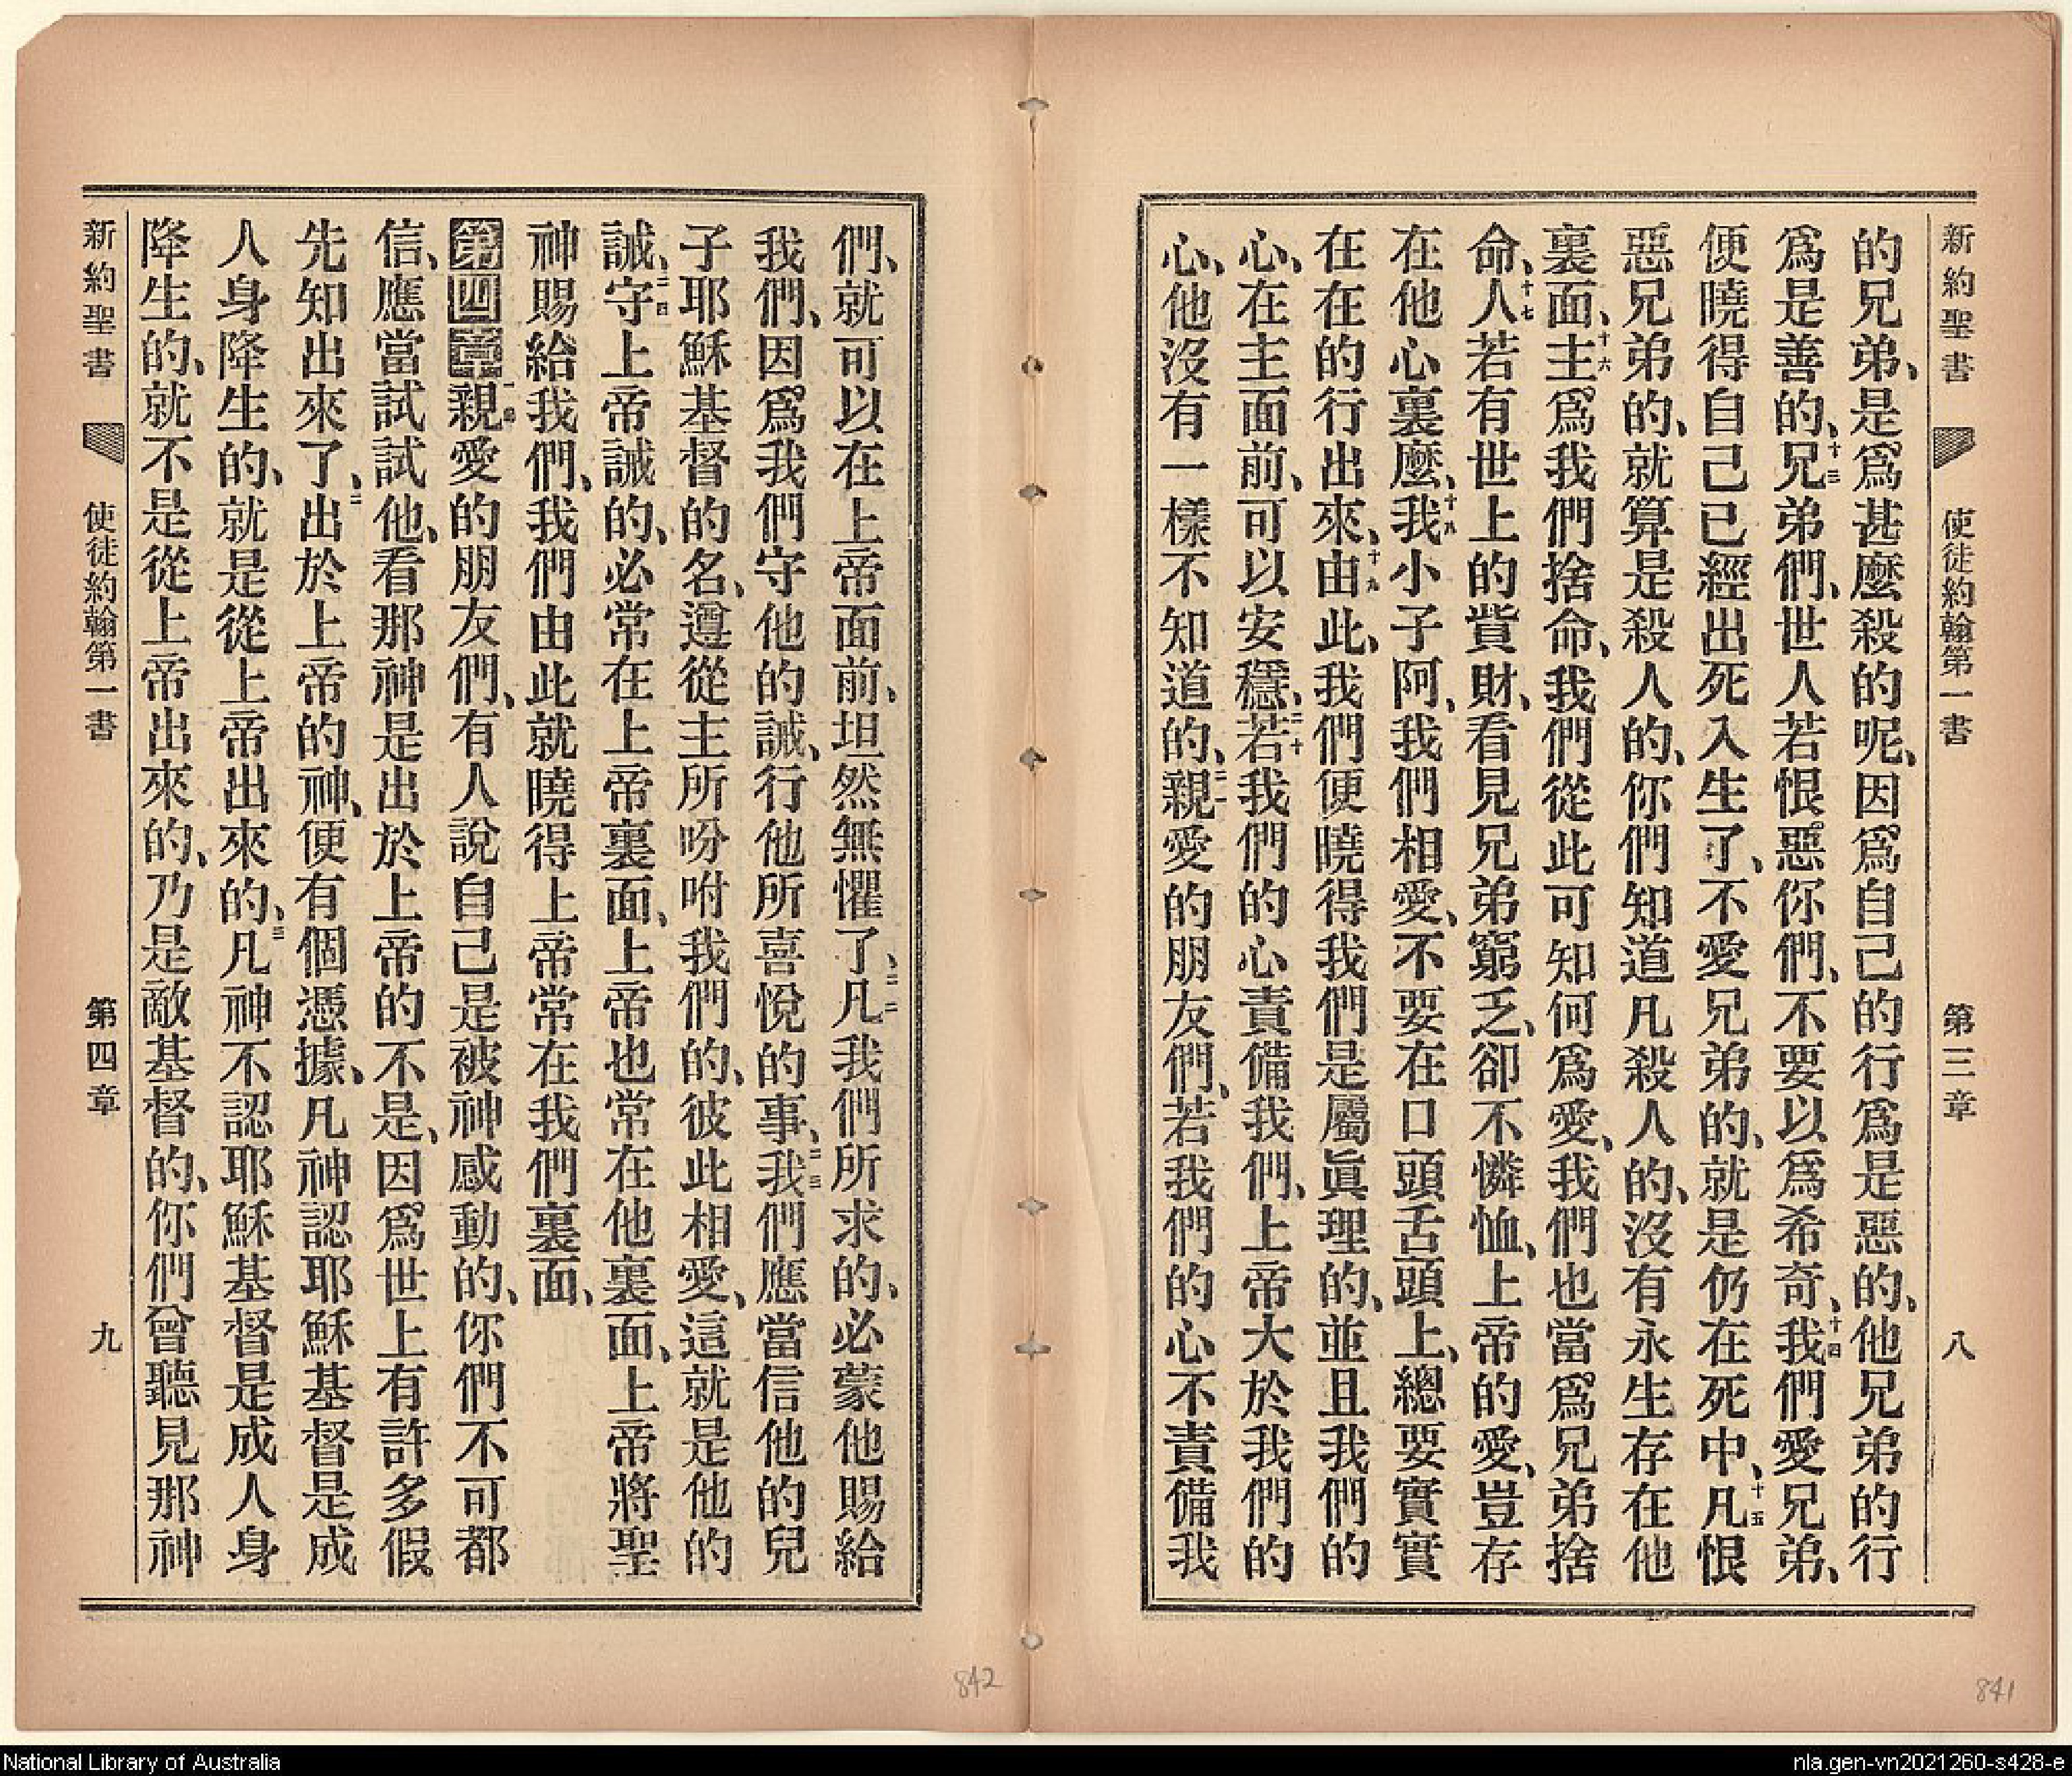 新約聖書 使徒約翰第一書 第三章 八
的兄弟、是爲甚麼殺的呢、因爲自己的行爲是惡的、他兄弟的行
爲是善的、十三兄弟們、世人若恨惡你們、不要以爲希奇、十四我們愛兄弟、
便曉得自己已經出死入生了、不愛兄弟的、就是仍在死中、十五凡恨
惡兄弟的、就算是殺人的、你們知道凡殺人的、沒有永生存在他
裏面、十六主爲我們捨命、我們從此可知何爲愛、我們也當爲兄弟捨
命、十七人若有世上的貲財、看見兄弟窮乏、卻不憐恤、上帝的愛、豈存
在他心裏麼、十八我小子阿、我們相愛、不要在口頭舌頭上、總要實實
在在的行出來、十九由此、我們便曉得我們是屬眞理的、並且我們的
心、在主面前、可以安穩、二十若我們的心責備我們、上帝大於我們的
心、他沒有一樣不知道的、二一親愛的朋友們、若我們的心不責備我
們、就可以在上帝面前、坦然無懼了、二二凡我們所求的、必蒙他賜給
我們、因爲我們守他的誡、行他所喜悅的事、二三我們應當信他的兒
子耶穌基督的名、遵從主所吩咐我們的、彼此相愛、這就是他的
誡、二四守上帝誡的、必常在上帝裏面、上帝也常在他裏面、上帝將聖
神賜給我們、我們由此就曉得上帝常在我們裏面、
第四章 一節親愛的朋友們、有人說自己是被神感動的、你們不可都
信、應當試試他、看那神是出於上帝的不是、因爲世上有許多假
先知出來了、二出於上帝的神、便有個憑據、凡神認耶穌基督是成
人身降生的、就是從上帝出來的、三凡神不認耶穌基督是成人身
降生的、就不是從上帝出來的、乃是敵基督的、你們曾聽見那神
新約聖書 使徒約翰第一書 第四章 九
842
841
National Library of Australia
nla.gen-vn2021260-s428-e